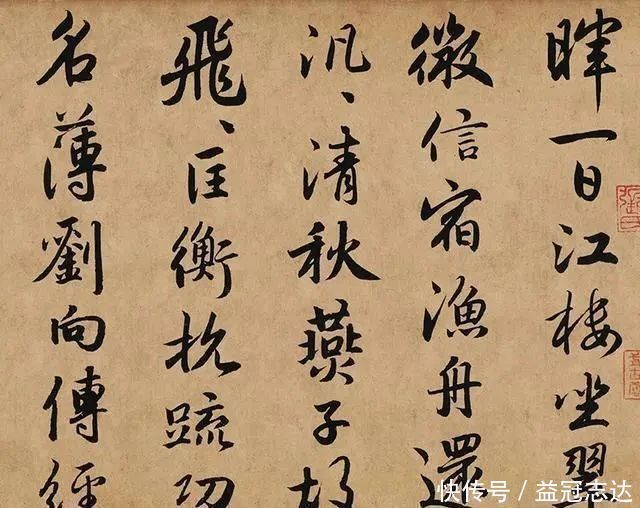 暉一日江樓坐翠
微信宿漁舟還
汎〻清秋燕子故
飛〻匡衡抗疏功
名薄劉向傳經
快传号／益冠志达